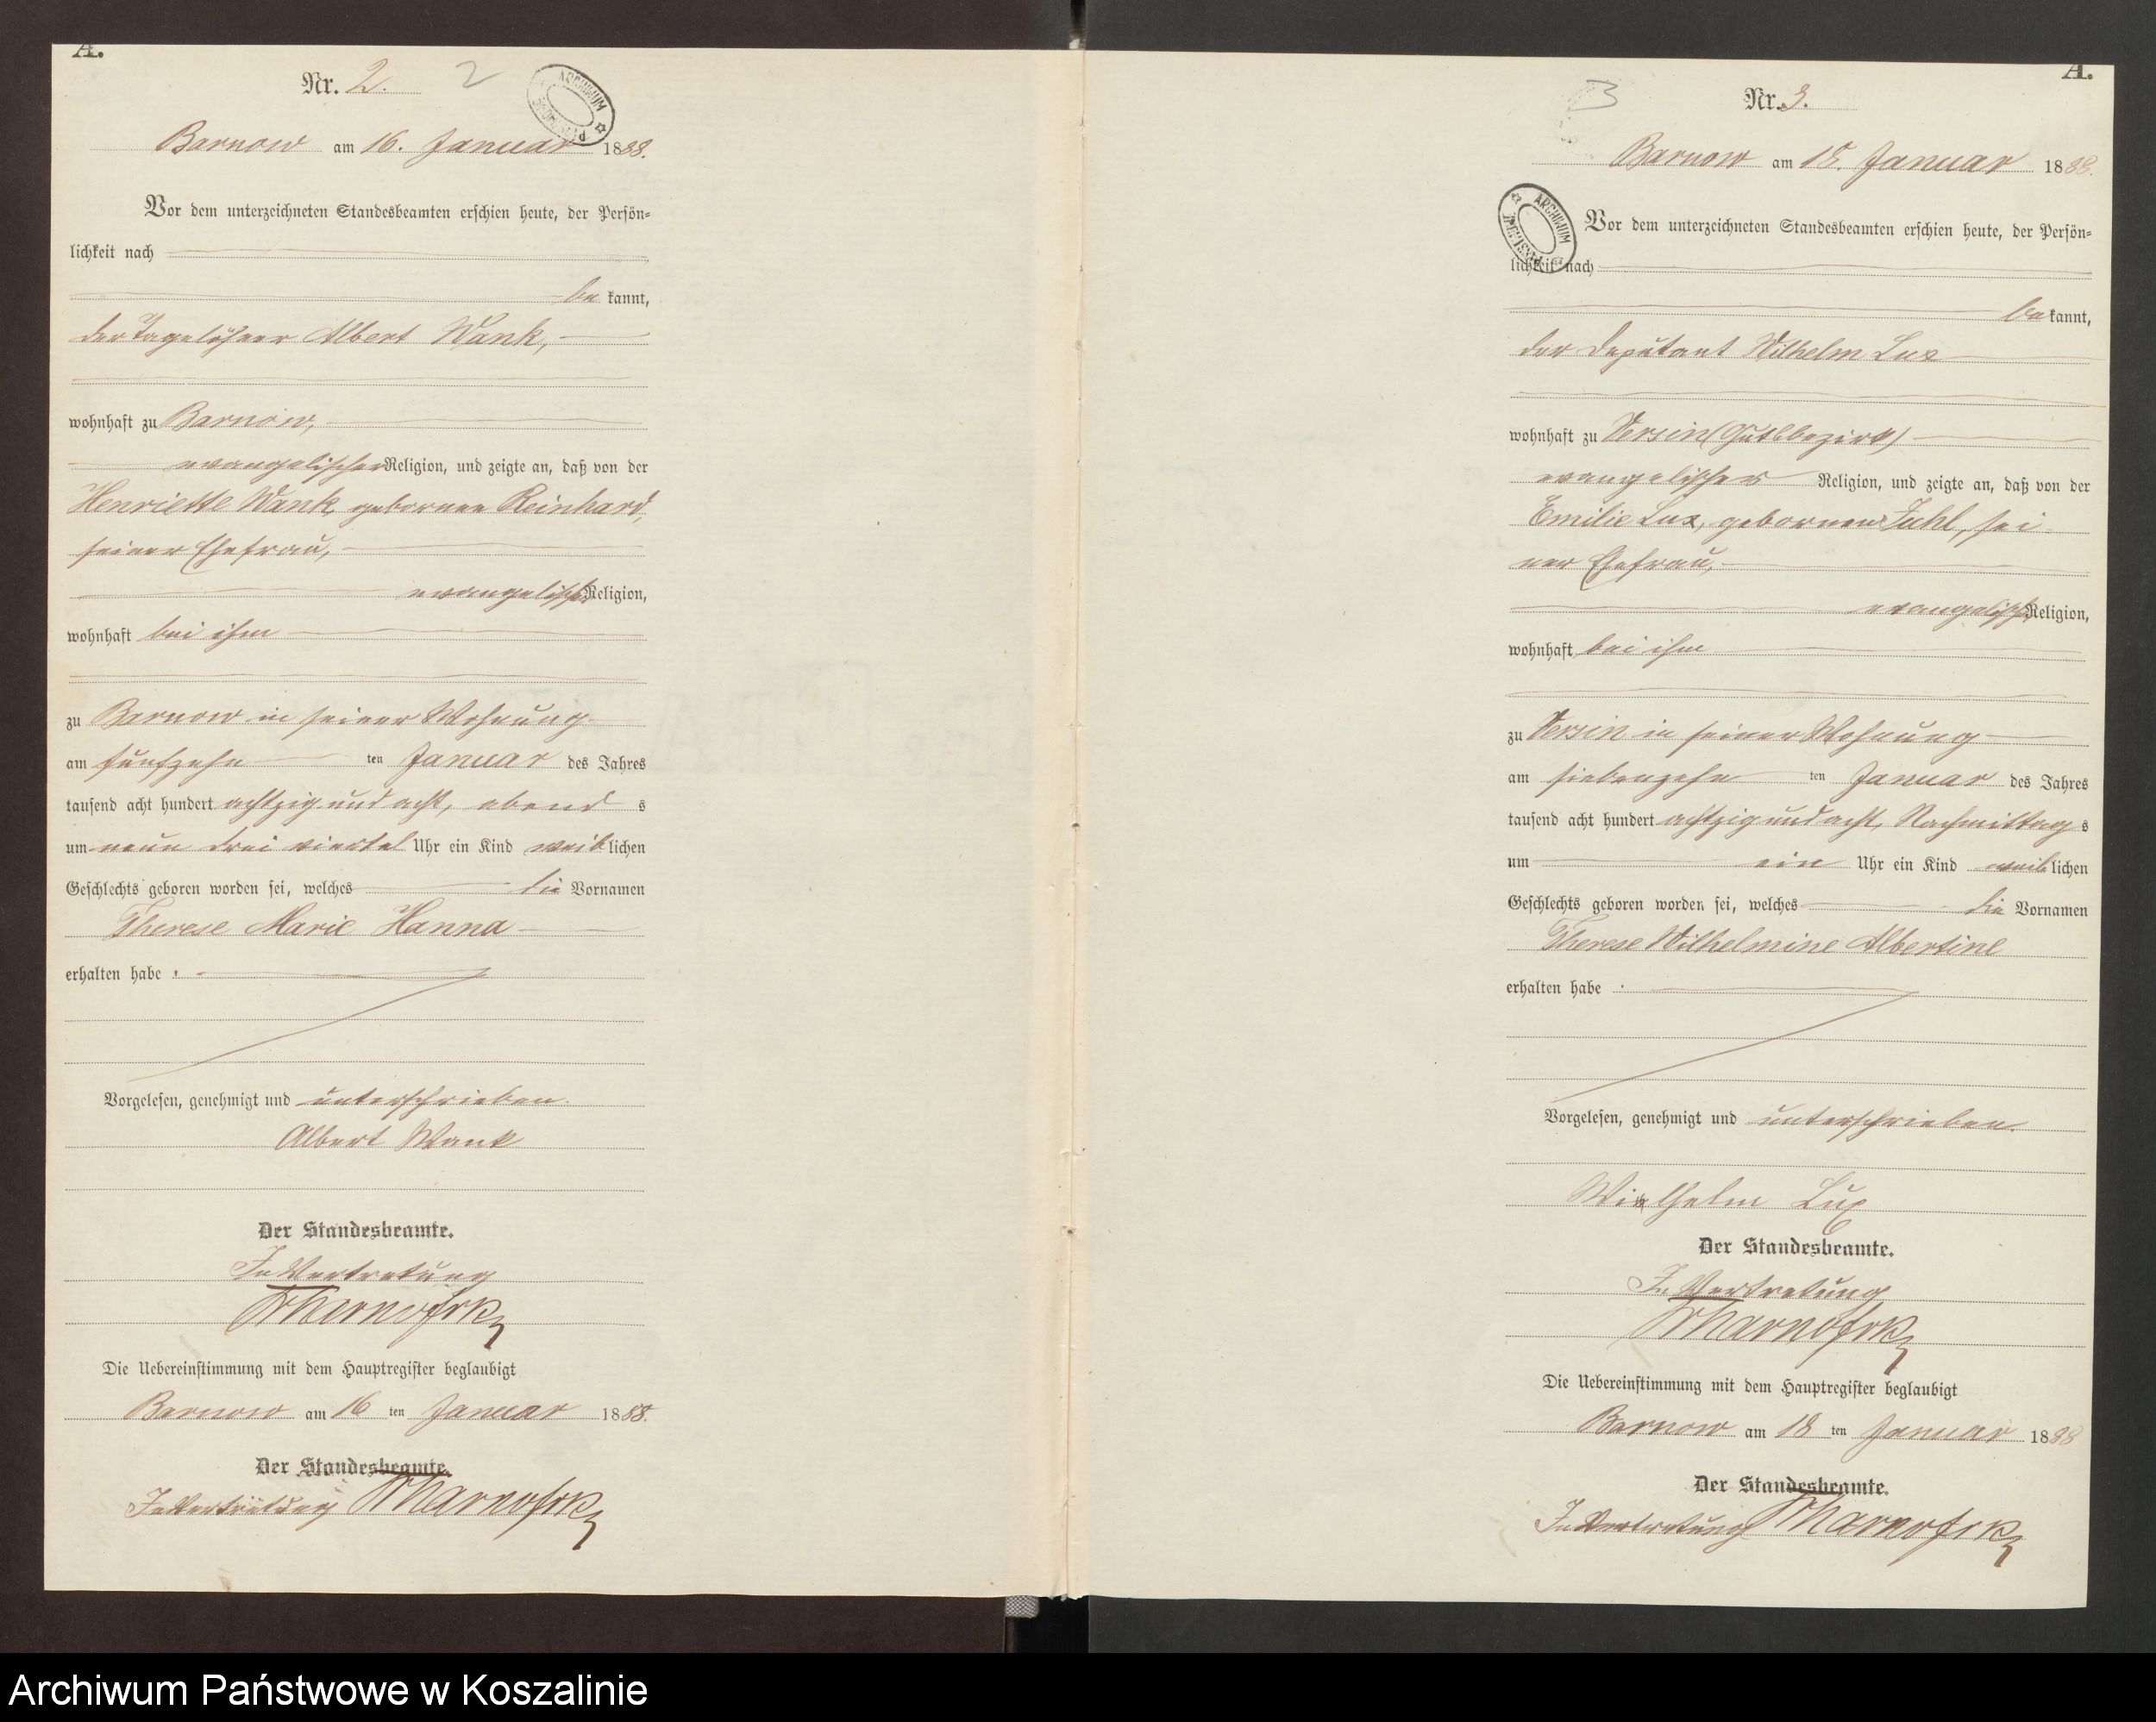 A.
Nr. 2.
2
ARCHIWUM
Barnow am 16. Januar 1888.
Vor dem unterzeichneten Standesbeamten erschien heute, der Persön-
lichkeit nach
be kannt,
der Tagelöhner Albert Wank,
wohnhaft zu Barnow,
evangelischer Religion, und zeigte an, daß von der
Henriette Wank, geborenen Reinhard,
seiner Ehefrau,
evangelischer Religion,
wohnhaft bei ihm
zu Barnow in seiner Wohnung
am fünfzehn ten Januar des Jahres
tausend acht hundert achtzig und acht, abend s
um neun drei viertel Uhr ein Kind weib lichen
Geschlechts geboren worden sei, welches die Vornamen
Therese Marie Hanna
erhalten habe .
Vorgelesen, genehmigt und unterschrieben.
Albert Wank
Der Standesbeamte.
In Vertretung
Die Uebereinstimmung mit dem Hauptregister beglaubigt
Barnow am 16 ten Januar 1888.
Der Standesbeamte.
In Vertretung
A.
3
Nr. 3.
Barnow am 18. Januar 1888.
ARCHIWUM
Vor dem unterzeichneten Standesbeamten erschien heute, der Persön-
lichkeit nach
be kannt,
der Deputant Wilhelm Lux
wohnhaft zu Versin (Gutsbezirk)
evangelischer Religion, und zeigte an, daß von der
Emilie Lux, geborenen Juhl, sei
ner Ehefrau,
evangelischer Religion,
wohnhaft bei ihm
zu Versin in seiner Wohnung
am siebenzehn ten Januar des Jahres
tausend acht hundert achtzig und acht, Nachmittag s
um ein Uhr ein Kind weib lichen
Geschlechts geboren worden sei, welches die Vornamen
Therese Wilhelmine Albertine
erhalten habe .
Vorgelesen, genehmigt und unterschrieben.
Wilhelm Lux
Der Standesbeamte.
In Vertretung
Die Uebereinstimmung mit dem Hauptregister beglaubigt
Barnow am 18 ten Januar 1888
Der Standesbeamte.
In Vertretung
Archiwum Państwowe w Koszalinie